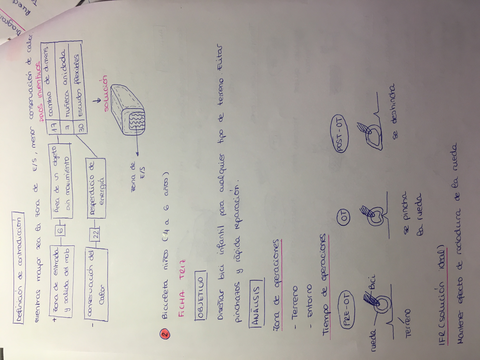 Definición de contradicción
Mientras mayor sea la zona de E/S, menor conservación de calor
+ Zona de entrada y salida del mob
6
Área de un objeto sin movimiento
- Conservación del calor
22
Desperdicio de energía
17 cambio de dimens.
7 muñeca anidada
30 escudos flexibles
solución
zona de E/S
2 Bicicleta niños (4 a 6 años)
FICHA TRIZ
OBJETIVO
Diseñar bici infantil para cualquier tipo de terreno. Evitar
pinchazos y rápida reparación.
ANÁLISIS
Zona de operaciones
- Terreno
- Entorno
Tiempo de operaciones
PRE-OT
OT
POST-OT
rueda
bici
terreno
se pincha la rueda
se deshincha
IFR (solución ideal)
Mantener efecto de rodadura de la rueda